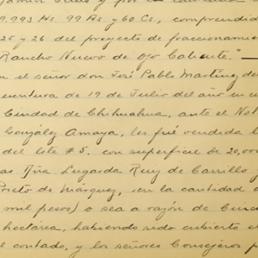 9.993 Hs. 99 As. y 60 Cs., comprendid
25 y 26 del proyecto de fraccionamien
Rancho Nuevo de Ojo Caliente." —
el señor don José Pablo Martínez, de
cuentura de 19 de Julio del año en cu
Ciudad de Chihuahua, ante el Not
González Amaya, les fué vendida l
del lote #5. con superficie de 20,000
as Ana Lugarda Ruy de Carrillo y
Prieto de Márquez, en la cantidad d
mil pesos) o sea a razón de Cinc
hectárea, habiendo sido cubierto el
al contado, y los señores Consejeros p